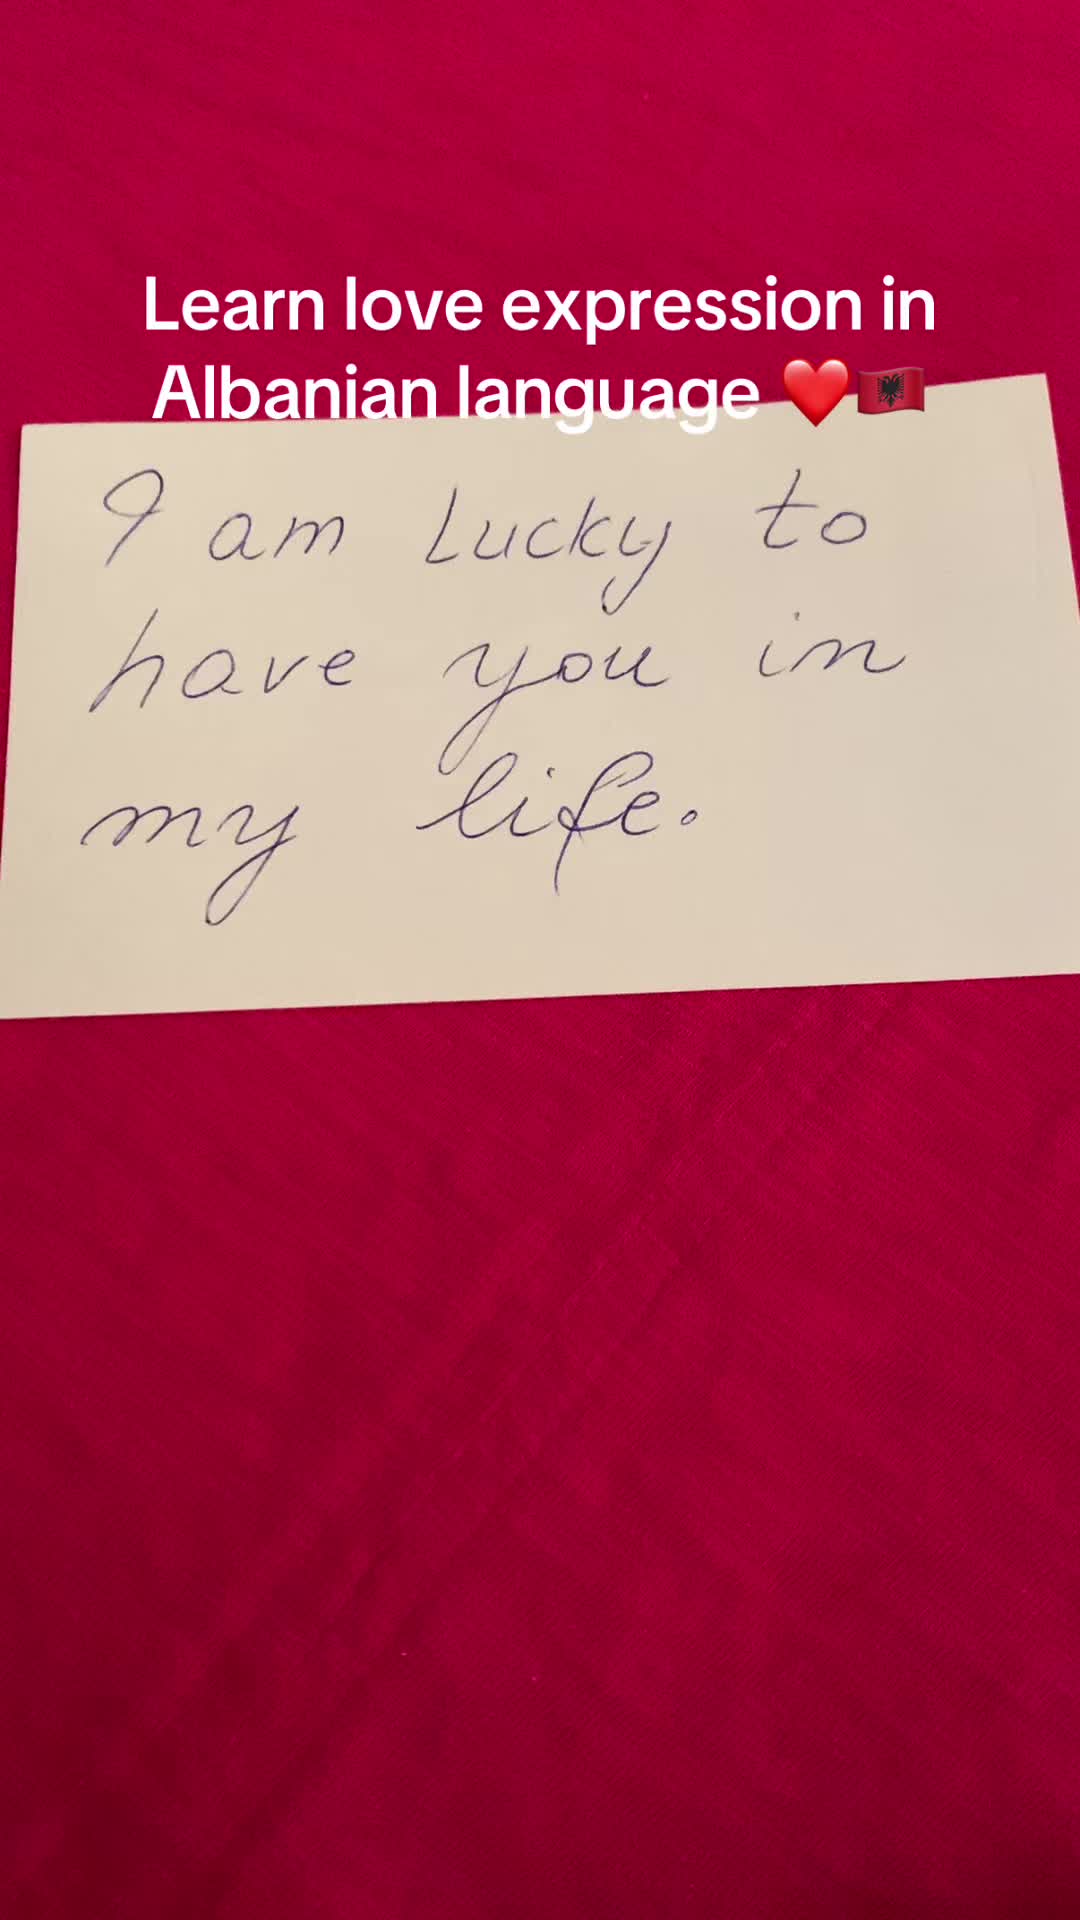 Learn love expression in
Albanian language ❤️🇦🇱
I am Lucky to
have you in
my life.